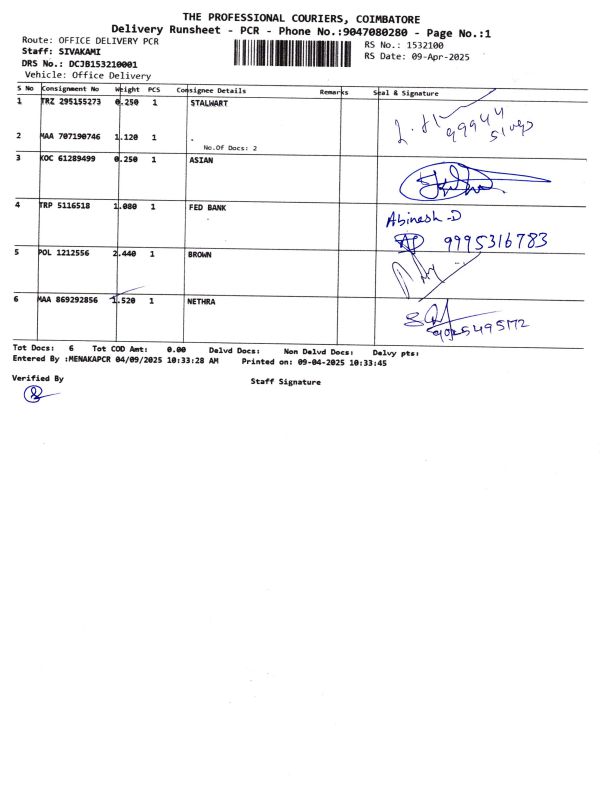 THE PROFESSIONAL COURIERS, COIMBATORE
Delivery Runsheet - PCR - Phone No.:9047080280 - Page No.:1
Route: OFFICE DELIVERY PCR
RS No.: 1532100
Staff: SIVAKAMI
RS Date: 09-Apr-2025
DRS No.: DCJB153210001
Vehicle: Office Delivery
S No Consignment No Weight PCS Consignee Details Remarks Seal & Signature
1 TRZ 295155273 0.250 1 STALWART
99944
2 MAA 707190746 1.120 1 .
No.Of Docs: 2
3 KOC 61289499 0.250 1 ASIAN
4 TRP 5116518 1.080 1 FED BANK Abinesh-D
9995316783
5 POL 1212556 2.440 1 BROWN
6 MAA 869292856 1.520 1 NETHRA
Tot Docs: 6 Tot COD Amt: 0.00 Delvd Docs: Non Delvd Docs: Delvy pts:
Entered By :MENAKAPCR 04/09/2025 10:33:28 AM Printed on: 09-04-2025 10:33:45
Verified By
Staff Signature